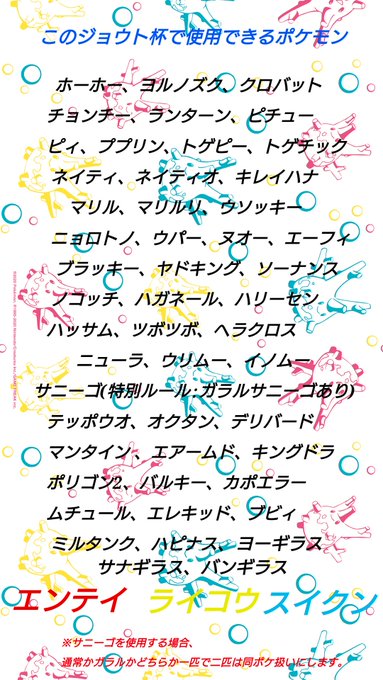 このジョウト杯で使用できるポケモン
ホーホー、ヨルノズク、クロバット
チョンチー、ランターン、ピチュー
ピィ、ププリン、トゲピー、トゲチック
ネイティ、ネイティオ、キレイハナ
マリル、マリルリ、ウソッキー
ニョロトノ、ウパー、ヌオー、エーフィ
ブラッキー、ヤドキング、ソーナンス
ノコッチ、ハガネール、ハリーセン
ハッサム、ツボツボ、ヘラクロス
ニューラ、ウリムー、イノムー
サニーゴ(特別ルール:ガラルサニーゴあり)
テッポウオ、オクタン、デリバード
マンタイン、エアームド、キングドラ
ポリゴン2、バルキー、カポエラー
ムチュール、エレキッド、ブビィ
ミルタンク、ハピナス、ヨーギラス
サナギラス、バンギラス
エンテイ ライコウ スイクン
※サニーゴを使用する場合、
通常かガラルかどちらか一匹で二匹は同ポケ扱いにします。